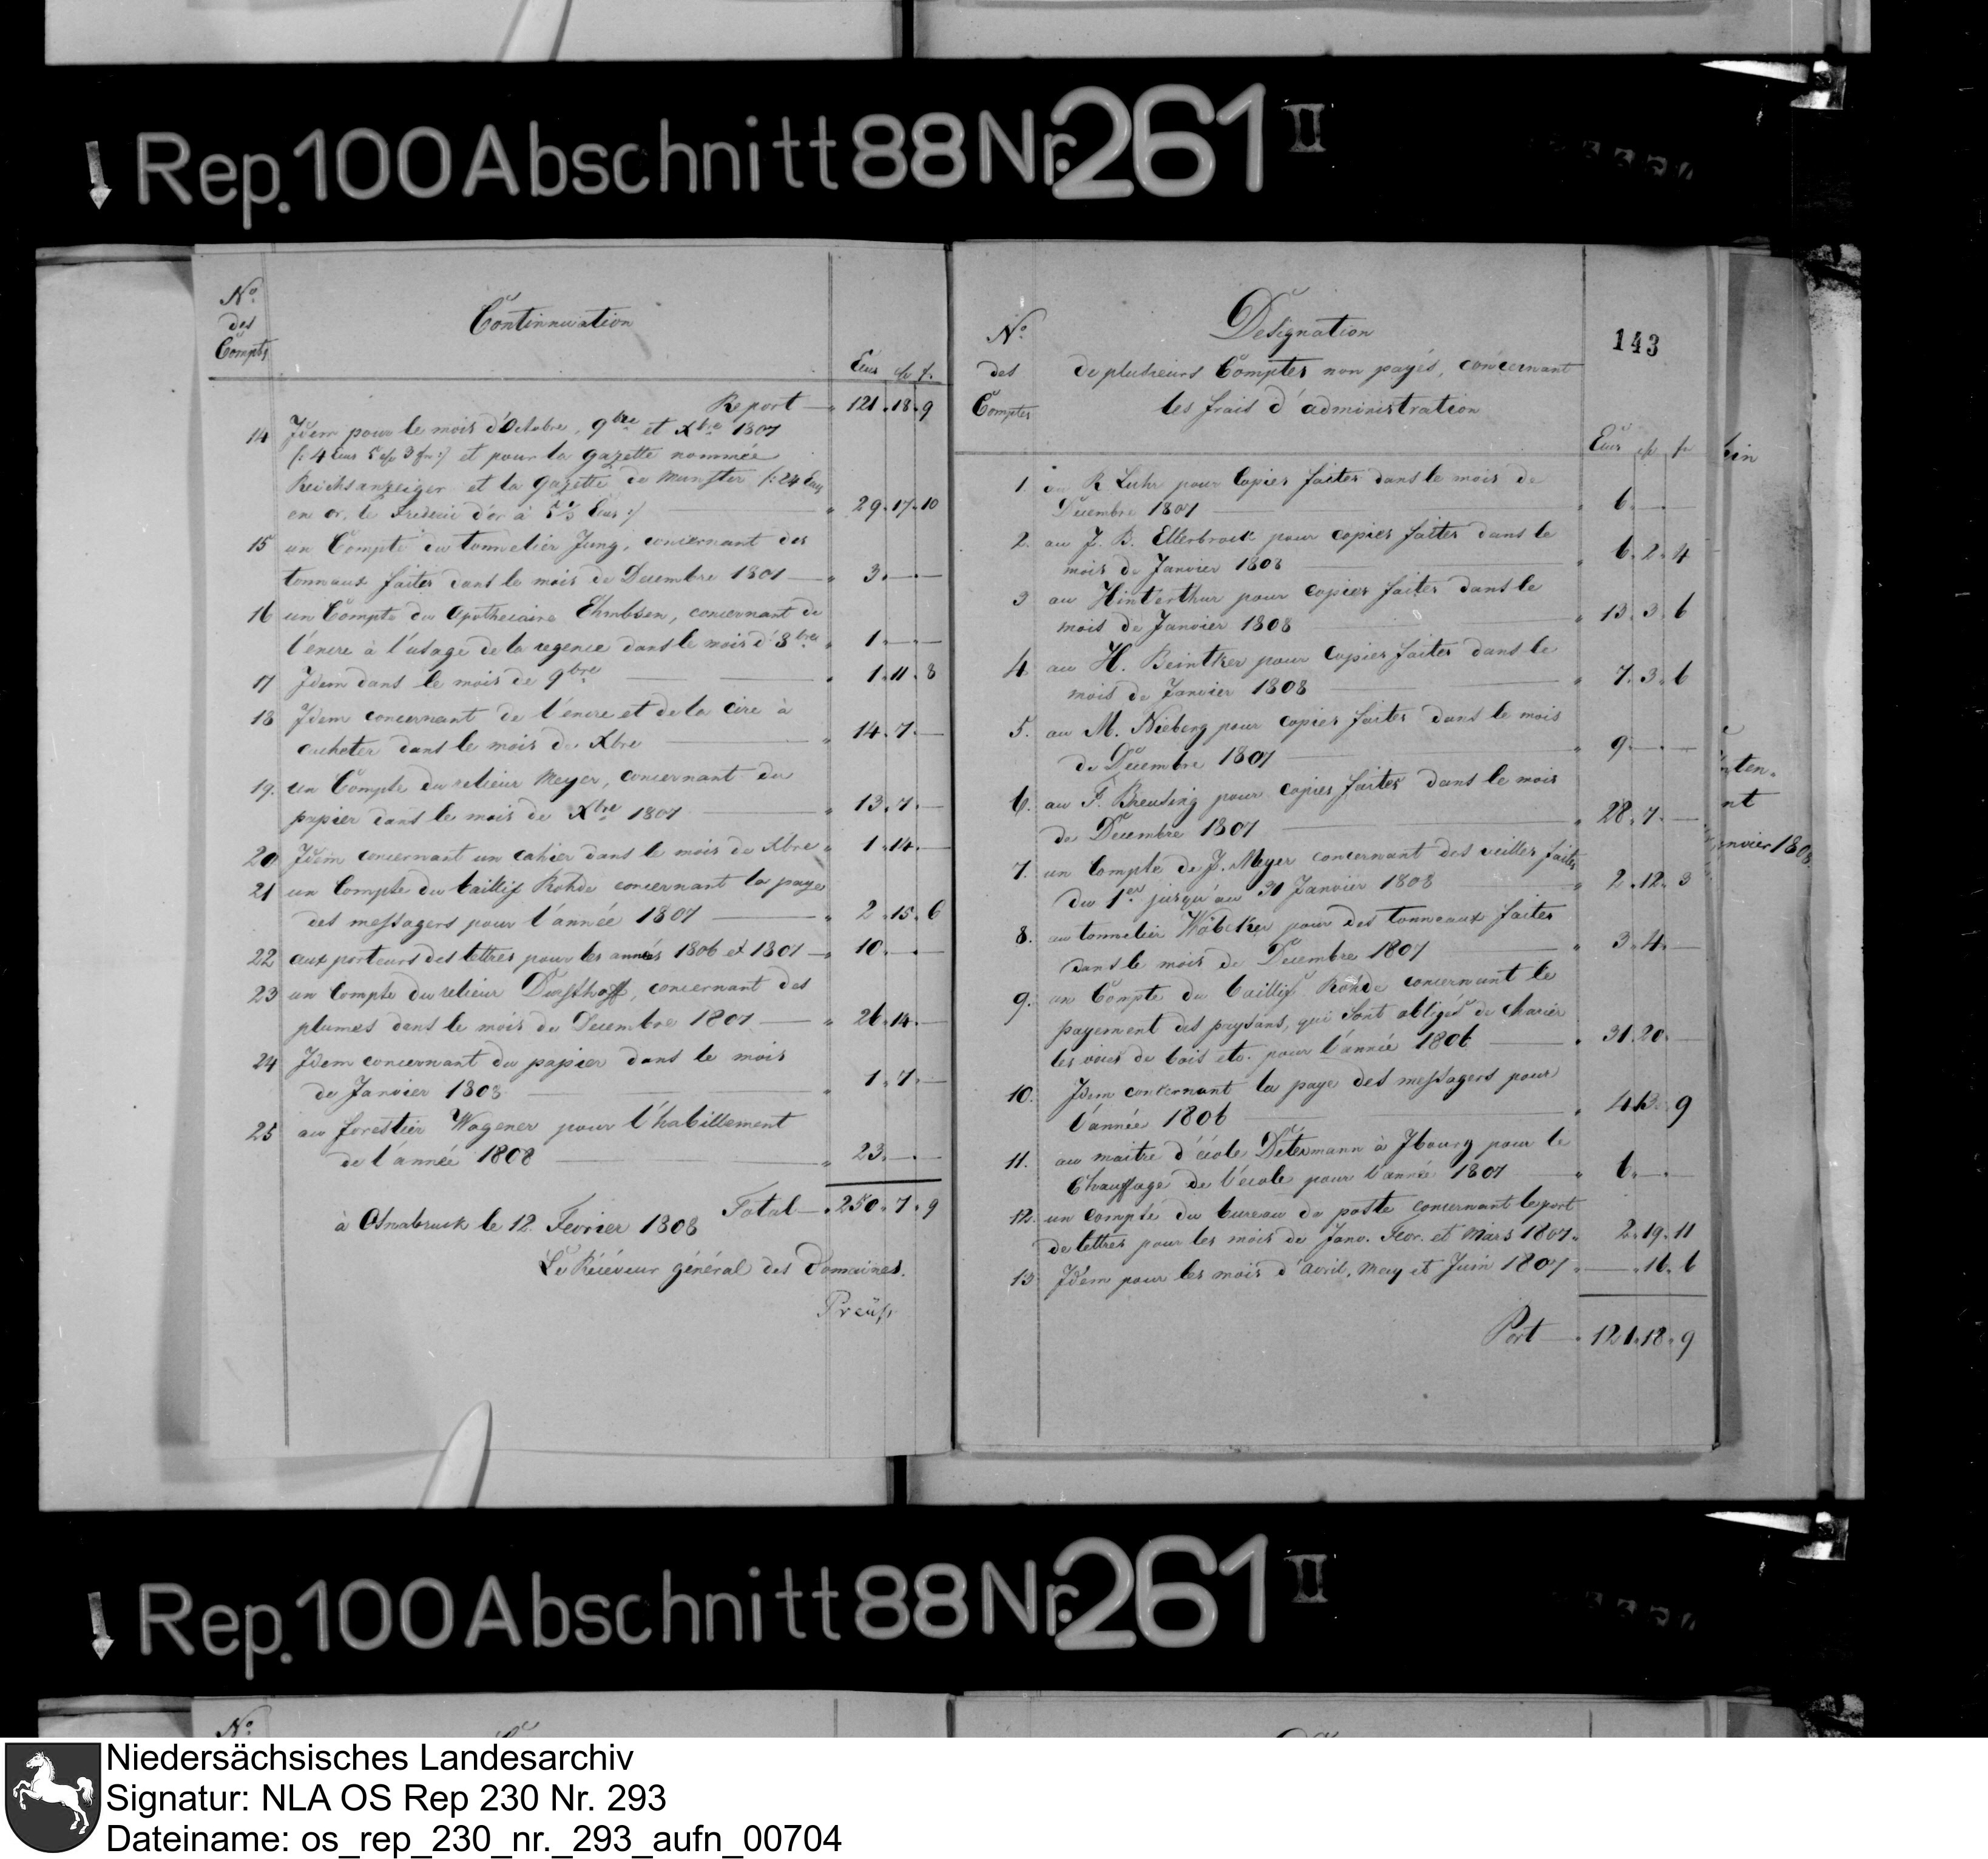 Rep. 100 Abschnitt 88 Nr. 261 II
No.
des
Compts
Continuation
Ecus
Report — 121. 18. 9
14 Idem pour le mois d'Octobre, 9bre et Xbre 1807
(: 4 Ecus 5 3 :) et pour la gazette nommée
Reichsanzeiger et la gazette de Munster (: 24 Ecus
en or, le Frederic d'or à 5 1/3 Ecus :) — 29. 17. 10
15 un Compte du tonnelier Jung, concernant des
tonneaux faites dans le mois de Decembre 1807 — 3. — . —
16 un Compte du Apothecaire Ehmbsen, concernant de
l'encre à l'usage de la regence dans le mois d' 8bre 1. — . —
17 Idem dans le mois de 9bre — 1. 11. 8
18 Idem concernant de l'encre et de la cire à
cacheter dans le mois de Xbre — 14. 7. —
19. un Compte du relieur Meyer, concernant du
papier dans le mois de Xbre 1807 — 13. 7. —
20 Idem concernant un cahier dans le mois de Xbre 1. 14. —
21 un Compte du baillif Rohde concernant la paye
des messagers pour l'année 1807 — 2. 15. 6
22 aux porteurs des lettres pour les années 1806 et 1807 — 10. — . —
23 un Compte du relieur concernant des
plumes dans le mois de Decembre 1807 — 26. 14. —
24 Idem concernant du papier dans le mois
de Janvier 1808 — 1. 7. —
25 au forestier Wagener pour l'habillement
de l'année 1808 — 23. — . —
Total — 250. 7. 9
à Osnabruck le 12. Fevrier 1808
Le Réceveur général des Domaines.
Preüß
143
No.
des
Comptes
Designation
de plusieurs Comptes non payés, concernant
les frais d'administration
Ecus
1. au R. Luhr pour Copies faites dans le mois de
Decembre 1807 — 6. — . —
2. au J. B. Ellerbrock pour copies faites dans le
mois de Janvier 1808 — 6. 2. 4
3 au Hinterthur pour copies faites dans le
mois de Janvier 1808 — 13. 3. 6
4. au H. Beintker pour Copies faites dans le
mois de Janvier 1808 — 7. 3. 6
5. au M. Nieberg pour copies faites dans le mois
de Decembre 1807 — 9. — . —
6. au F. Breusing pour copies faites dans le mois
de Decembre 1807 — 28. 7. —
7. un Compte de J. Meyer concernant des veilles faites
du 1er jusqu'au 31 Janvier 1808 — 2. 12. 3
8. au tonnelier Wöbcker pour des tonneaux faites
dans le mois de Decembre 1807 — 3. 4. —
9. un Compte du baillif Rohde concernant le
payement des paysans, qui sont obligés de charier
les voies de bois etc. pour l'année 1806 — 31. 20. —
10. Idem concernant la paye des messagers pour
l'année 1806 — 4. 13. 9
11. au maitre d'école Determann à Ibourg pour le
Chauffage de l'école pour l'année 1807 — 6. — . —
12. un compte du bureau de poste concernant le port
de lettres pour les mois de Janv. Fevr. et Mars 1807. 2. 19. 11
13 Idem pour les mois d'avril, May et Juin 1807 — . 16. 6
Port — 121. 18. 9
ein
nten.
nt
anvier 1808.
Rep. 100 Abschnitt 88 Nr. 261 II
No.
Niedersächsisches Landesarchiv
Signatur: NLA OS Rep 230 Nr. 293
Dateiname: os_rep_230_nr._293_aufn_00704